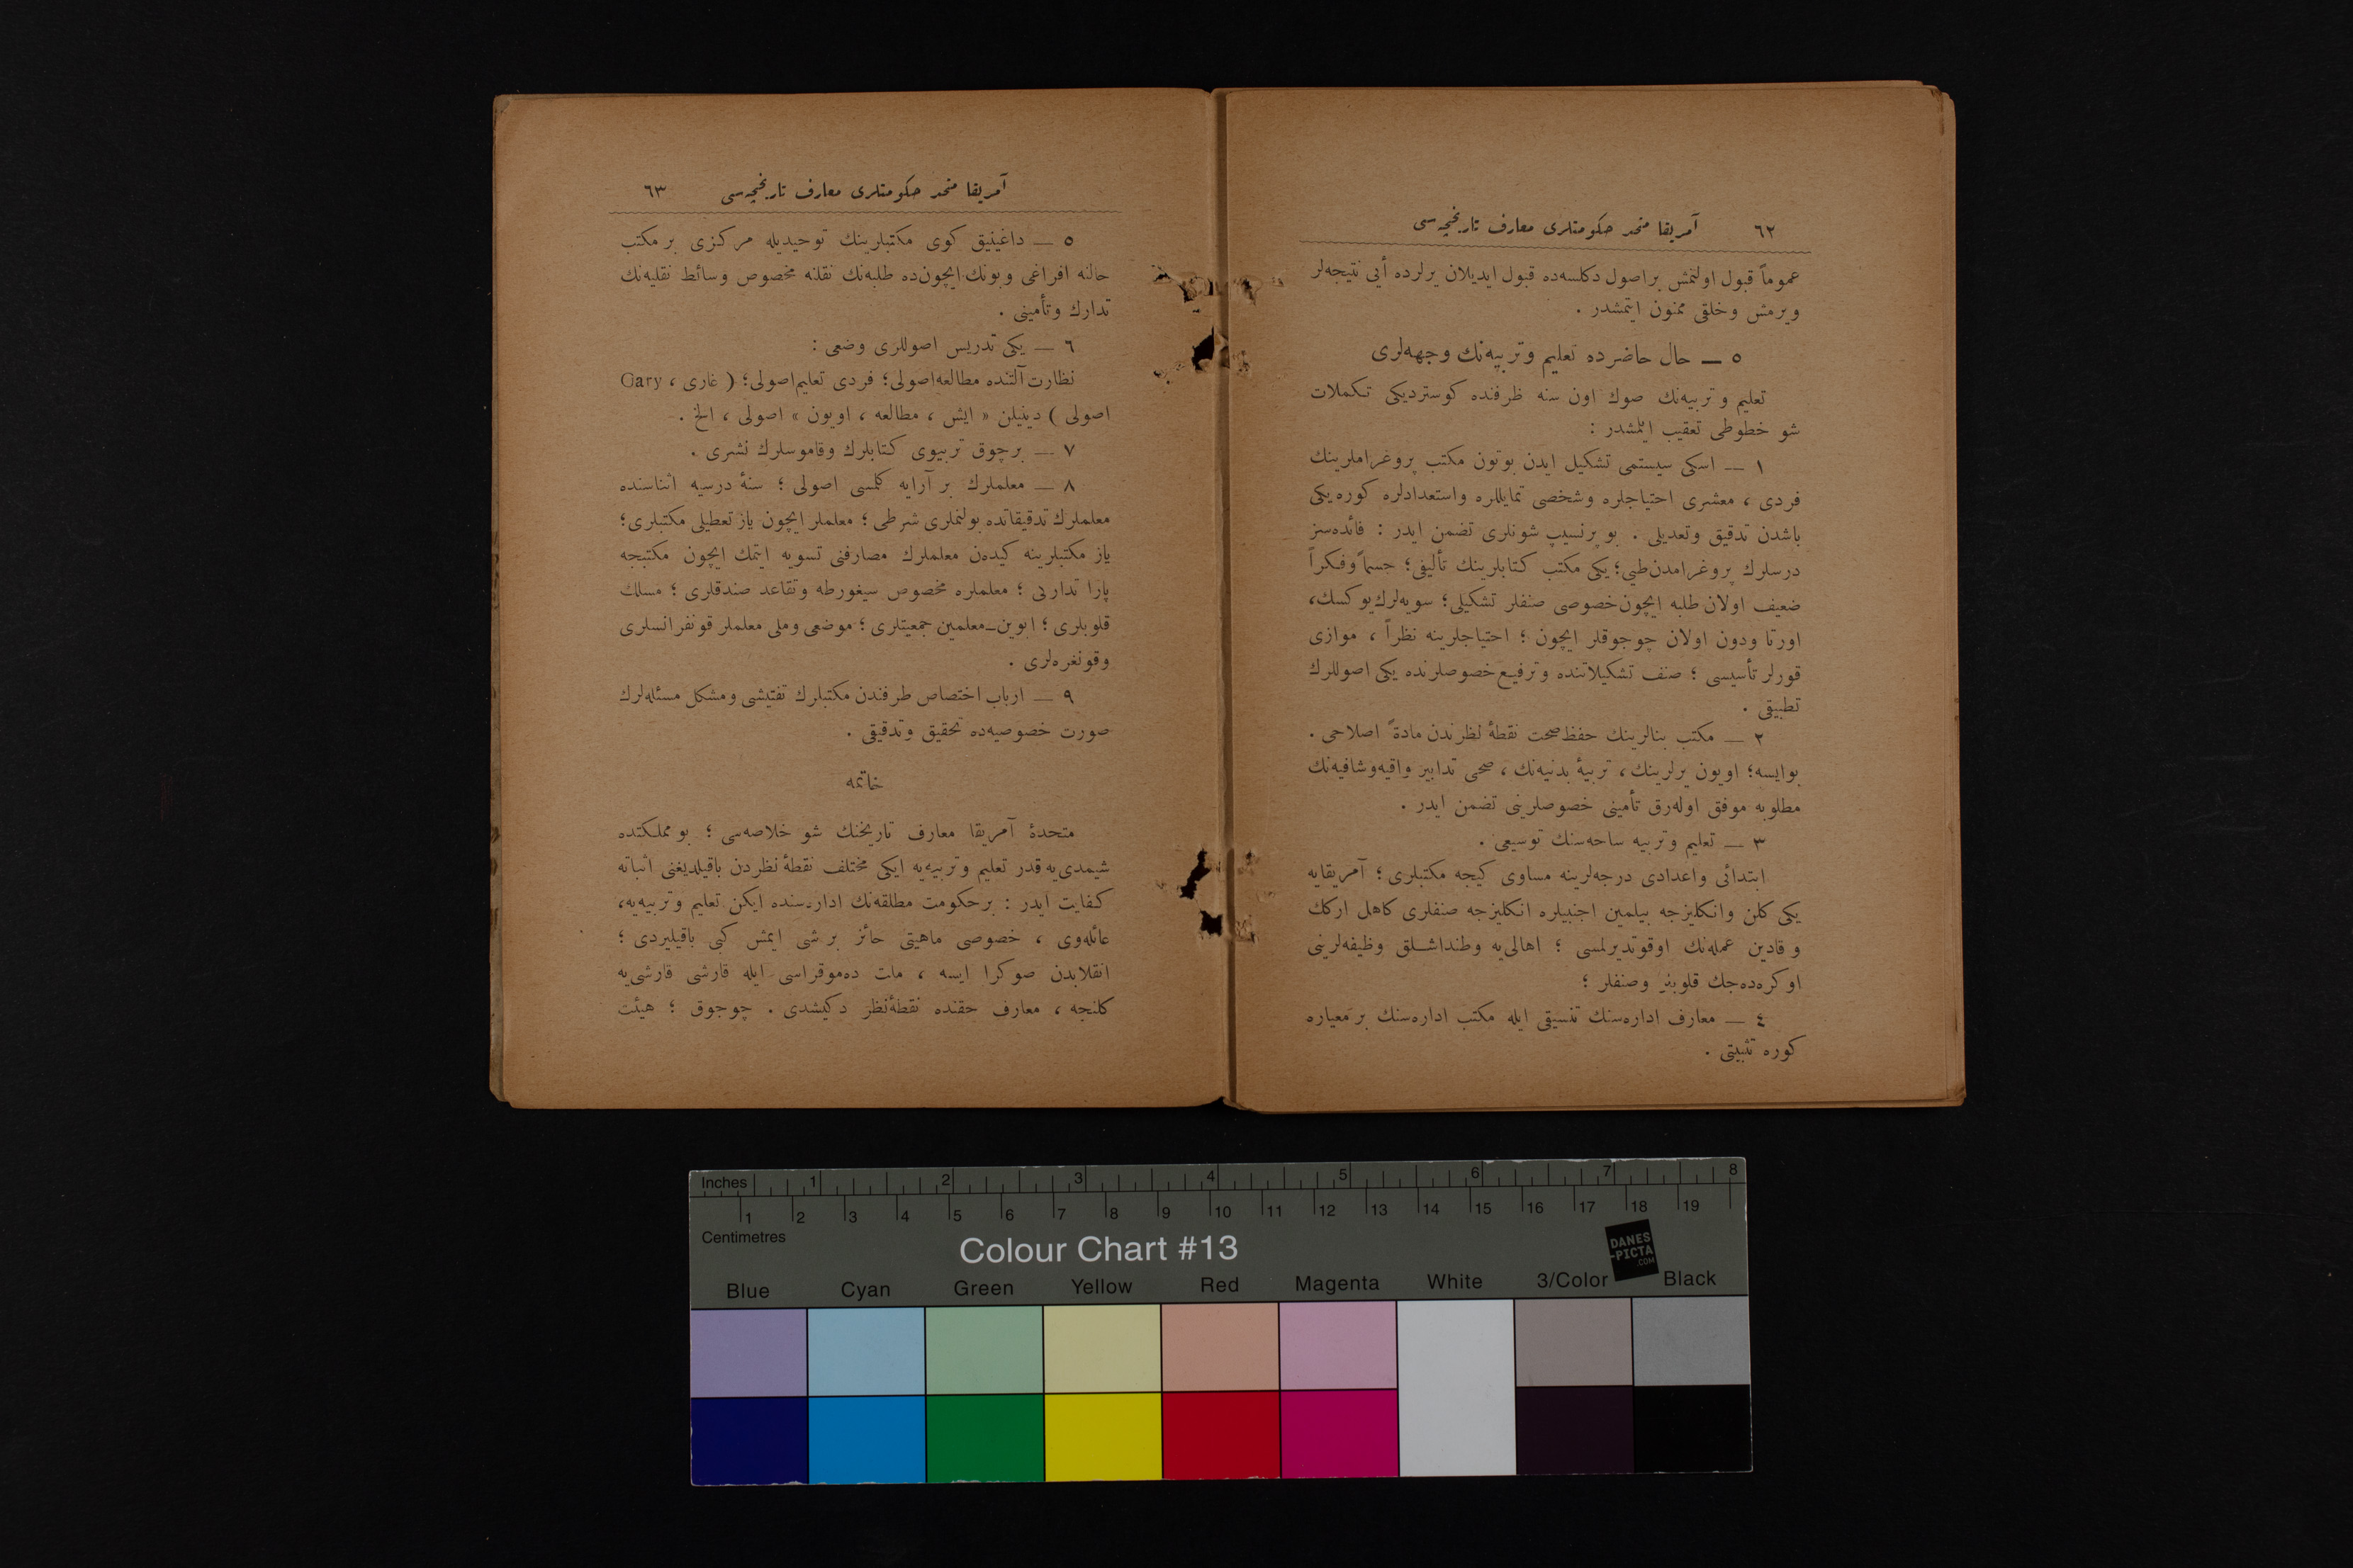 ٦٢ آمریقا متحد حکومتلری معارف تاریخچه‌سی
عموماً قبول اولنمش بر اصول دکلسه‌ده قبول ایدیلان یرلرده أیی نتیجه‌لر
ویرمش وخلقی ممنون ایتمشدر .
٥ — حال حاضرده تعلیم وتربیه‌نك وجهه‌لری
تعلیم و تربیه‌نك صوك اون سنه ظرفنده کوستردیکی تکملات
شو خطوطی تعقیب ایتمشدر :
١ — اسکی سیستمی تشکیل ایدن بوتون مکتب پروغراملرینك
فردی ، معشری احتیاجلره وشخصی تمایللره واستعدادلره کوره یکی
باشدن تدقیق وتعدیلی . بو پرنسیپ شونلری تضمن ایدر : فائده‌سز
درسلرك پروغرامدن طیی ؛ یکی مکتب کتابلرینك تألیفی ؛ جسماً وفکراً
ضعیف اولان طلبه ایچون خصوصی صنفلر تشکیلی ؛ سویه‌لرك یوکسك،
اورتا ودون اولان چوجوقلر ایچون ؛ احتیاجلرینه نظراً ، موازی
قورلر تأسیسی ؛ صنف تشکیلاتنده وترفیع خصوصلرنده یکی اصوللرك
تطبیقی .
٢ — مکتب بنالرینك حفظ صحت نقطهٔ نظرندن مادةً اصلاحی .
بوایسه؛ اویون یرلرینك ، تربیهٔ بدنیه‌نك ، صحی تدابیر واقیه‌وشافیه‌نك
مطلوبه موفق اوله‌رق تأمینی خصوصلرینی تضمن ایدر .
٣ — تعلیم وتربیه ساحه‌سنك توسیعی .
ابتدائی واعدادی درجه‌لرینه مساوی کیجه مکتبلری ؛ آمریقایه
یکی کلن وانکلیزجه بیلمین اجنبیلره انکلیزجه صنفلری کاهل ارکك
و قادین عمله‌نك اوقوتدیرلمسی ؛ اهالی‌یه وطنداشلق وظیفه‌لرینی
اوکره‌ده‌جك قلوبلر وصنفلر ؛
٤ — معارف اداره‌سنك تنسیقی ایله مکتب اداره‌سنك بر معیاره
کوره تثبیتی .
آمریقا متحد حکومتلری معارف تاریخچه‌سی ٦٣
٥ — داغینیق کوی مکتبلرینك توحیدیله مرکزی بر مکتب
حالنه افراغی وبونك ایچون‌ده طلبه‌نك نقلنه مخصوص وسائط نقلیه‌نك
تدارك وتأمینی .
٦ — یکی تدریس اصوللری وضعی :
نظارت آلتنده مطالعه اصولی؛ فردی تعلیم اصولی؛ ( غاری ، Gary
اصولی ) دینیلن « ایش ، مطالعه ، اویون » اصولی ، الخ .
٧ — برچوق تربیوی کتابلرك وقاموسلرك نشری .
٨ — معلملرك بر آرایه کلمسی اصولی ؛ سنهٔ درسیه اثناسنده
معلملرك تدقیقاتده بولنملری شرطی ؛ معلملر ایچون یاز تعطیلی مکتبلری؛
یاز مکتبلرینه کیده‌ن معلملرك مصارفنی تسویه ایتمك ایچون مکتبجه
پارا تدارکی ؛ معلملره مخصوص سیغورطه وتقاعد صندقلری ؛ مسلك
قلوبلری ؛ ابوین-معلمین جمعیتلری ؛ موضعی وملی معلملر قونفرانسلری
وقونغره‌لری .
٩ — ارباب اختصاص طرفندن مکتبلرك تفتیشی ومشکل مسئله‌لرك
صورت خصوصیه‌ده تحقیق وتدقیقی .
خاتمه
متحدهٔ آمریقا معارف تاریخنك شو خلاصه‌سی ؛ بو مملکتده
شیمدی‌یه قدر تعلیم وتربیه‌یه ایکی مختلف نقطهٔ نظردن باقیلدیغنی اثباته
کفایت ایدر : بر حکومت مطلقه‌نك اداره‌سنده ایکن تعلیم وتربیه‌یه،
عائله‌وی ، خصوصی ماهیتی حائز بر شی ایمش کبی باقیلیردی ؛
انقلابدن صوکرا ایسه ، ملت ده‌موقراسی ایله قارشی قارشی‌یه
کلنجه ، معارف حقنده نقطهٔ نظر دکیشدی . چوجوق ؛ هیئت
Inches 1 2 3 4 5 6 7 8
1 2 3 4 5 6 7 8 9 10 11 12 13 14 15 16 17 18 19
Centimetres
Colour Chart #13
DANES
-PICTA
.COM
Blue Cyan Green Yellow Red Magenta White 3/Color Black